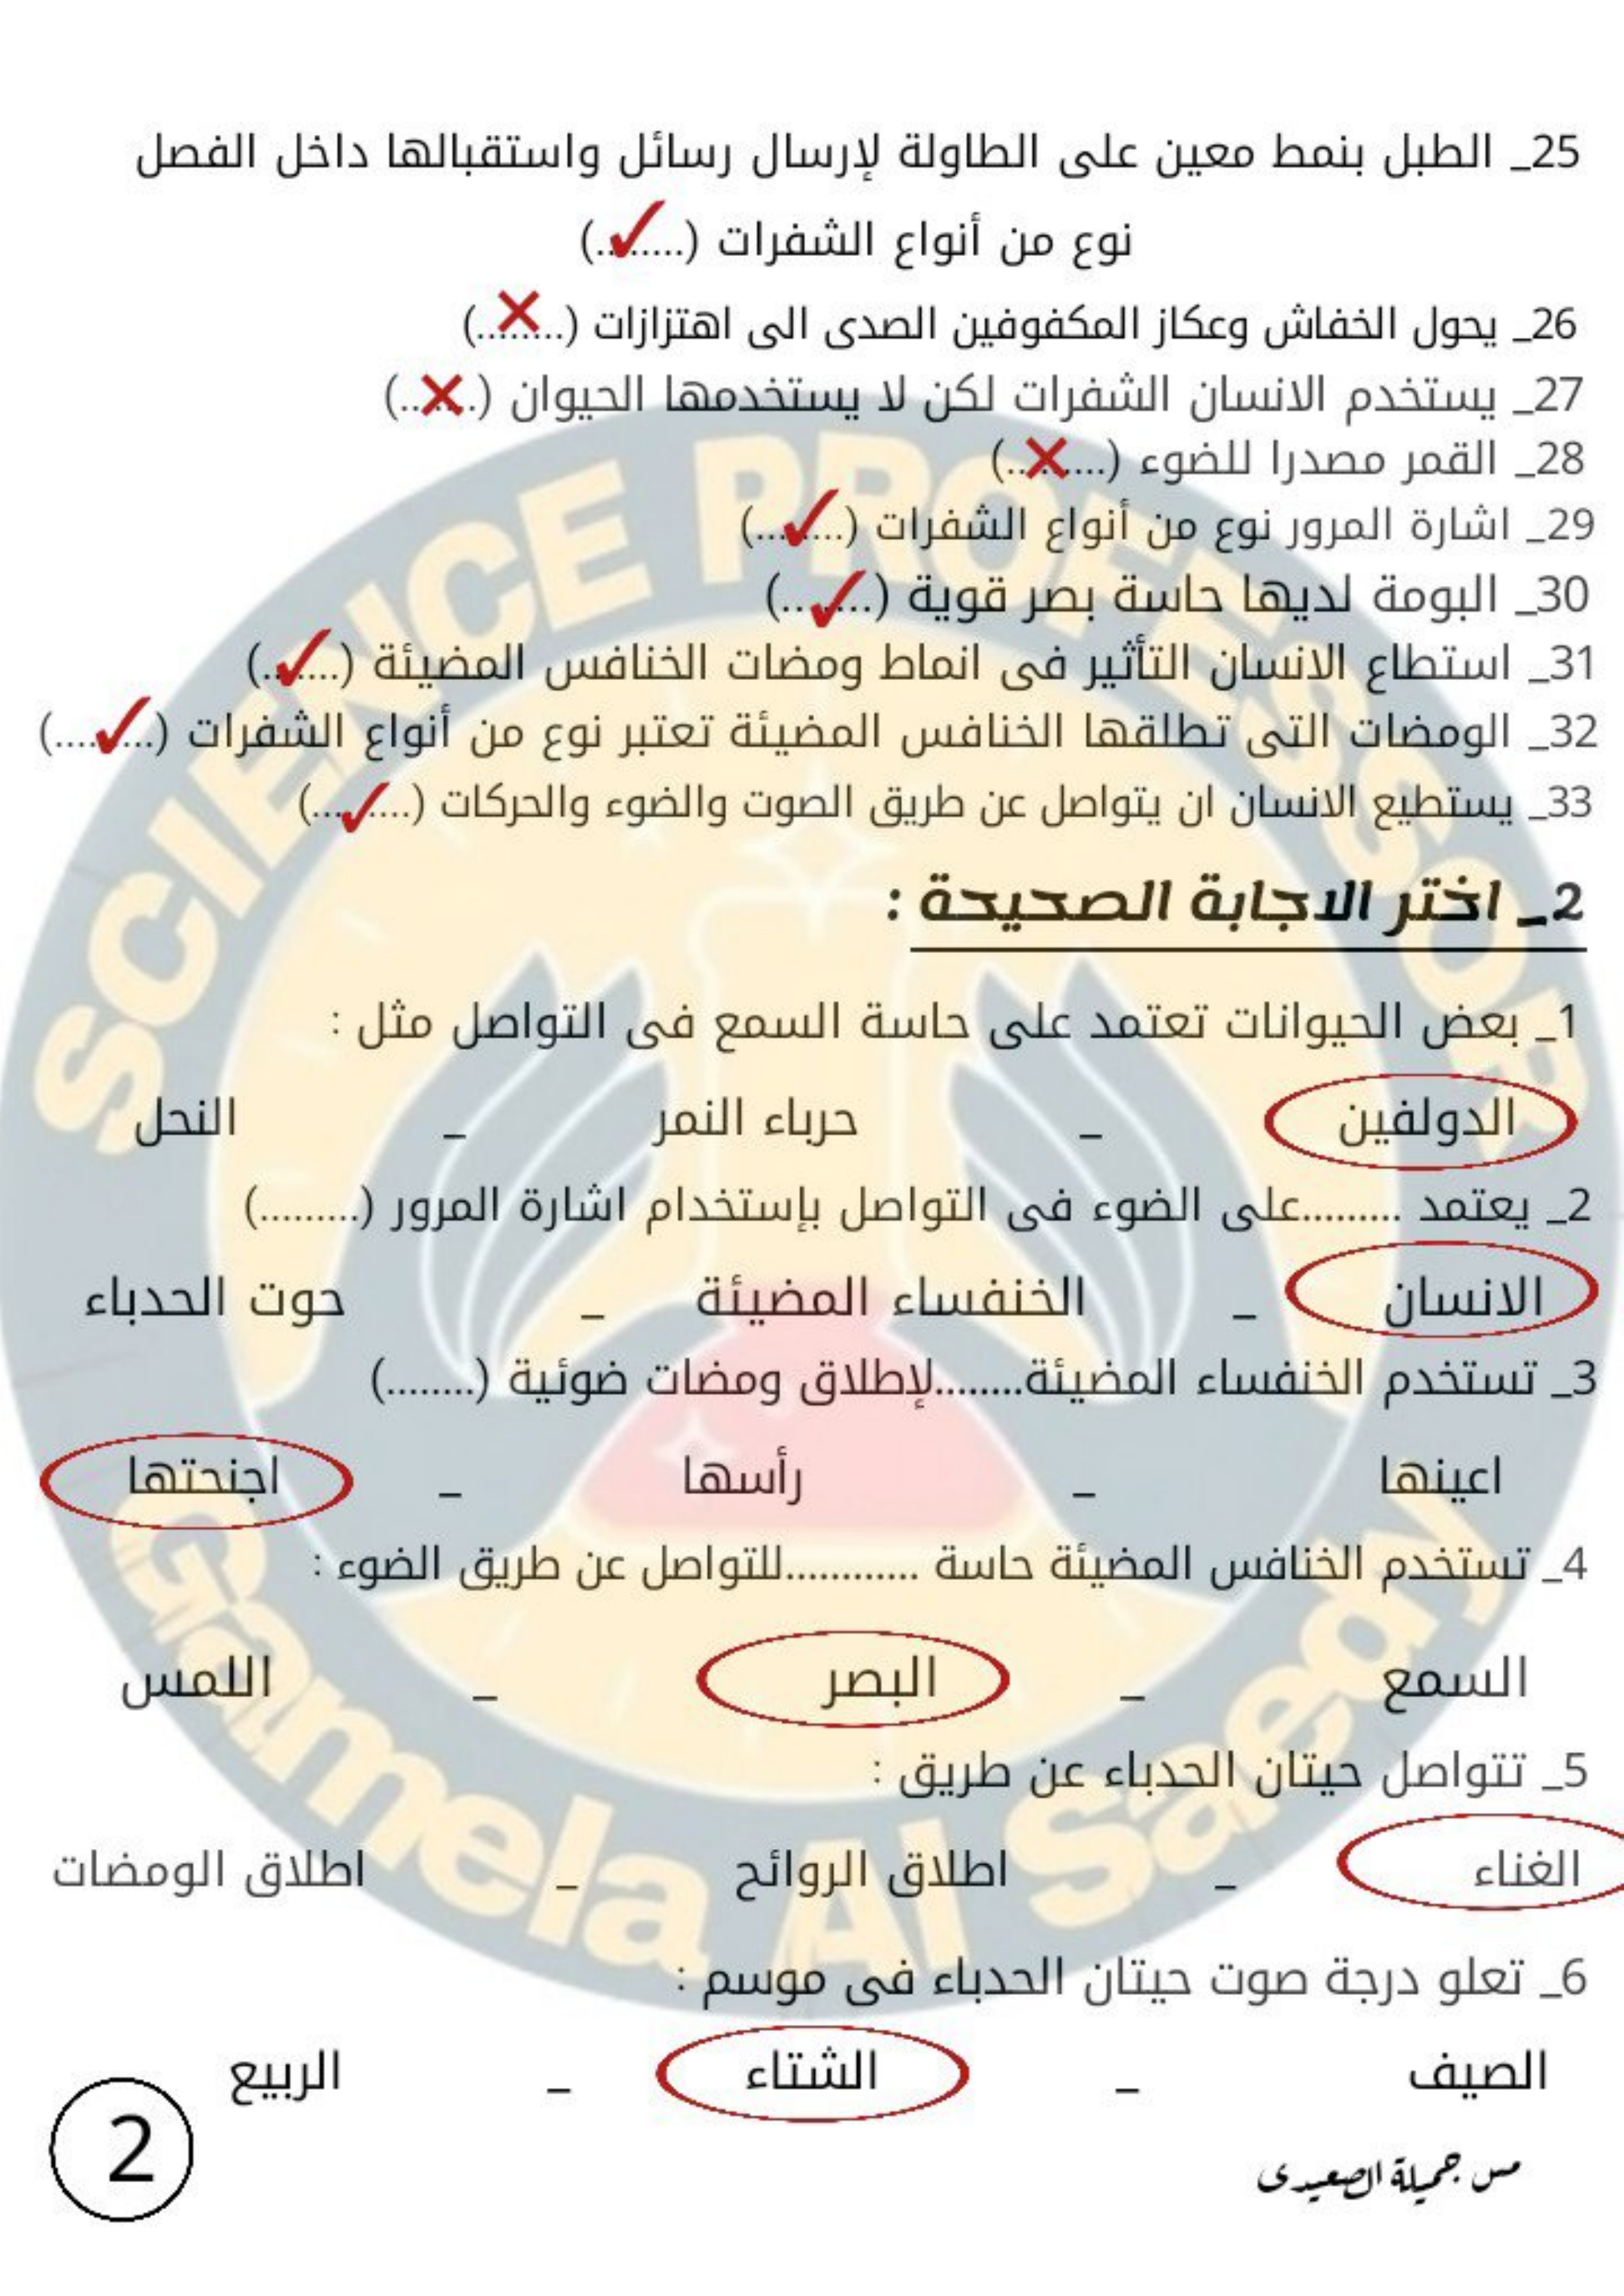 25_ الطبل بنمط معين على الطاولة لإرسال رسائل واستقبالها داخل الفصل
نوع من أنواع الشفرات (........) ✓
26_ يحول الخفاش وعكاز المكفوفين الصدى الى اهتزازات (........) ✗
27_ يستخدم الانسان الشفرات لكن لا يستخدمها الحيوان (.......) ✗
28_ القمر مصدرا للضوء (.........) ✗
29_ اشارة المرور نوع من أنواع الشفرات (.........) ✓
30_ البومة لديها حاسة بصر قوية (.........) ✓
31_ استطاع الانسان التأثير فى انماط ومضات الخنافس المضيئة (........) ✓
32_ الومضات التى تطلقها الخنافس المضيئة تعتبر نوع من أنواع الشفرات (..........) ✓
33_ يستطيع الانسان ان يتواصل عن طريق الصوت والضوء والحركات (..........) ✓
2_ اختر الاجابة الصحيحة :
1_ بعض الحيوانات تعتمد على حاسة السمع فى التواصل مثل :
الدولفين _ حرباء النمر _ النحل
2_ يعتمد .........على الضوء فى التواصل بإستخدام اشارة المرور (.........)
الانسان _ الخنفساء المضيئة _ حوت الحدباء
3_ تستخدم الخنفساء المضيئة........لإطلاق ومضات ضوئية (........)
اعينها _ رأسها _ اجنحتها
4_ تستخدم الخنافس المضيئة حاسة ............للتواصل عن طريق الضوء :
السمع _ البصر _ اللمس
5_ تتواصل حيتان الحدباء عن طريق :
الغناء _ اطلاق الروائح _ اطلاق الومضات
6_ تعلو درجة صوت حيتان الحدباء فى موسم :
الصيف _ الشتاء _ الربيع
مس جميلة الصعيدى
2
SCIENCE PROFESSOR
Gamela Al Saedy